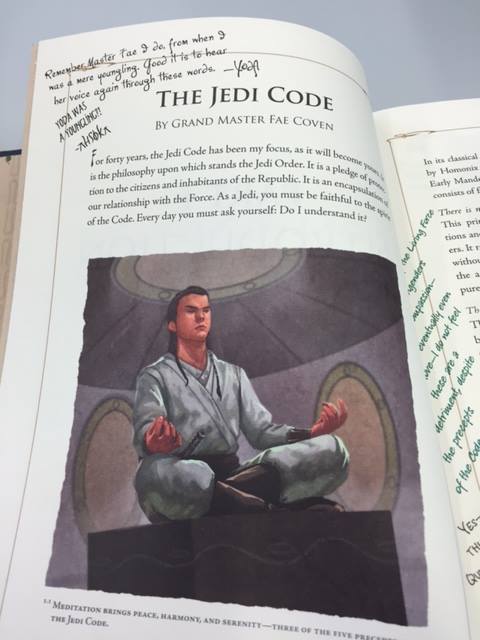 Remember Master Fae I do, from when I
was a mere youngling. Good it is to hear
her voice again through these words. —Yoda
YODA WAS
A YOUNGLING?!
-Ahsoka
THE JEDI CODE
BY GRAND MASTER FAE COVEN
For forty years, the Jedi Code has been my focus, as it will become yours. It
is the philosophy upon which stands the Jedi Order. It is a pledge of protec-
tion to the citizens and inhabitants of the Republic. It is an encapsulation of
our relationship with the Force. As a Jedi, you must be faithful to the spirit
of the Code. Every day you must ask yourself: Do I understand it?
1.1 MEDITATION BRINGS PEACE, HARMONY, AND SERENITY—THREE OF THE FIVE PRECEPTS
THE JEDI CODE.
In its classical
by Homonix
Early Mand
consists of f
There is n
This prin
tions and
ers. It r
witho
the a
pure
Th
the Living Force
engenders
compassion—
eventually even
love—I do not feel
these are a
detriment, despite
the precepts
of the Code
YES—
TH
QU